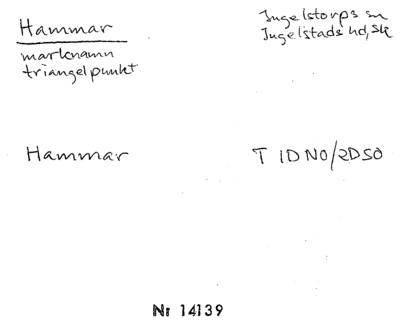 Hammar
marknamn
triangelpunkt
Ingelstorps sn
Ingelstads hd, Sk
Hammar
T 1D NO/2D SO
Nr 14139